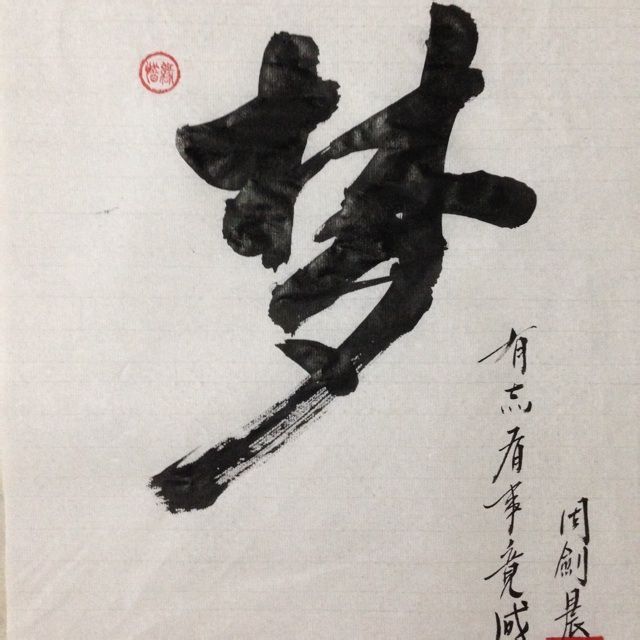 梦
有志者事竟成
周劍晨